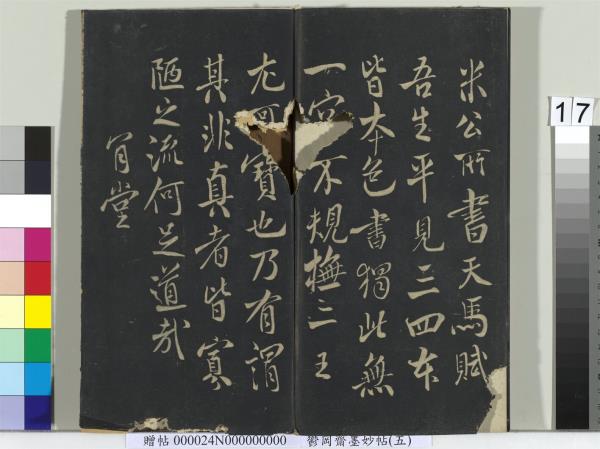 米公所書天馬賦
吾生平見三四本
皆本色書獨此無
一字不規橅二王
尤可寶也乃有謂
其非真者皆寡
陋之流何足道哉
肯堂
17
贈帖 000024N000000000 鬱岡齋墨妙帖(五)